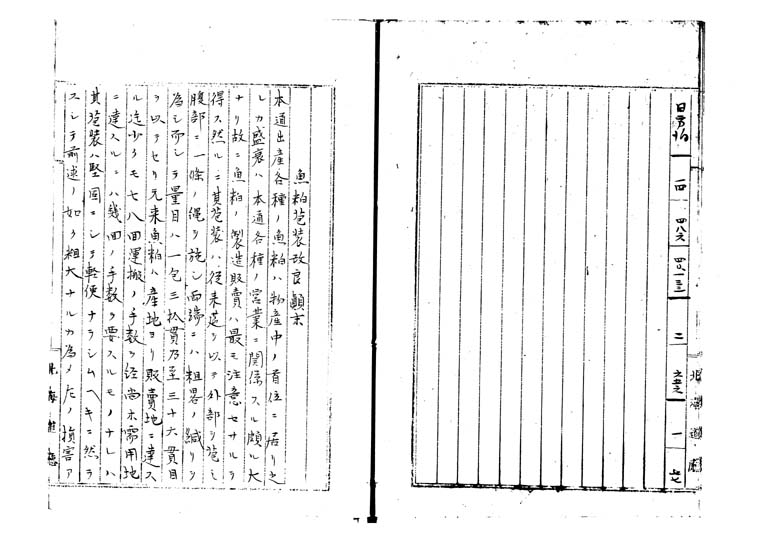 日高州
一四
四八六
四〇一三三
二
六五六
一
七七
北海道廳
魚粕苞装改良顛末
本道出産各種ノ魚粕ハ物産中ノ首位ニ居リ之
レカ盛衰ハ本道各種ノ営業ニ関係スル頗ル大
ナリ故ニ魚粕ノ製造販賣ハ最モ注意セサルヲ
得ス然ルニ其苞装ハ従来莚ヲ以テ外部ヲ苞ミ
腹部ニ一條ノ縄ヲ施シ両端ニハ粗畧ノ緘リヲ
為シ而シテ量目ハ一包三拾貫乃至三十六貫目
ヲ以テセリ元来魚粕ハ産地ヨリ販賣地ニ達ス
ル迄少クモ七八回運搬ノ手数ヲ経尚ホ需用地
ニ達スルニハ幾回ノ手数ヲ要スルモノナレハ
其苞装ハ堅固ニシテ軽便ナラシムヘキニ然ラ
スシテ前述ノ如ク粗大ナルカ為メ左ノ損害ア
北海道廳